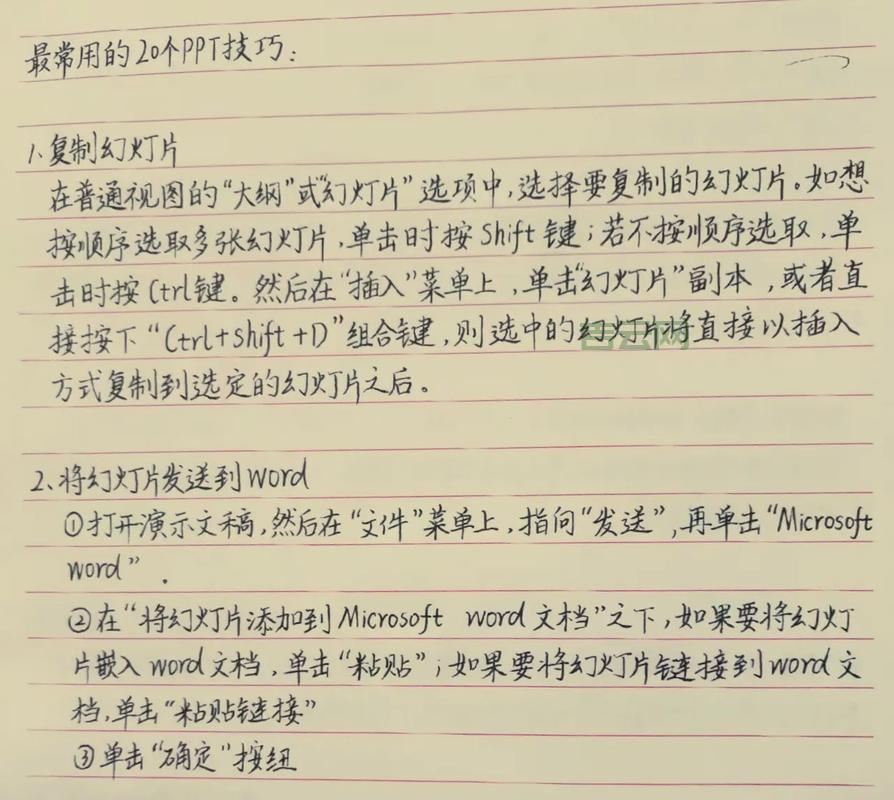 最常用的20个PPT技巧:
1、复制幻灯片
在普通视图的“大纲”或“幻灯片”选项中,选择要复制的幻灯片。如想
按顺序选取多张幻灯片,单击时按Shift键;若不按顺序选取,单
击时按Ctrl键。然后在“插入”菜单上,单击“幻灯片”副本,或者直
接按下“Ctrl+shift+D”组合键,则选中的幻灯片将直接以插入
方式复制到选定的幻灯片之后。
2、将幻灯片发送到word
①打开演示文稿,然后在“文件”菜单上,指向“发送”,再单击“Microsoft
word”.
②在“将幻灯片添加到Microsoft word文档”之下,如果要将幻灯
片嵌入word文档,单击“粘贴”;如果要将幻灯片链接到word文
档,单击“粘贴链接”
③单击“确定”按纽